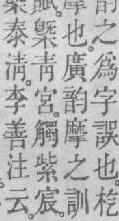 韵之爲字誤也杚
摩也。廣韵摩之訓
賦。槩靑宮。觸紫宸。
槩泰清。李善注云。